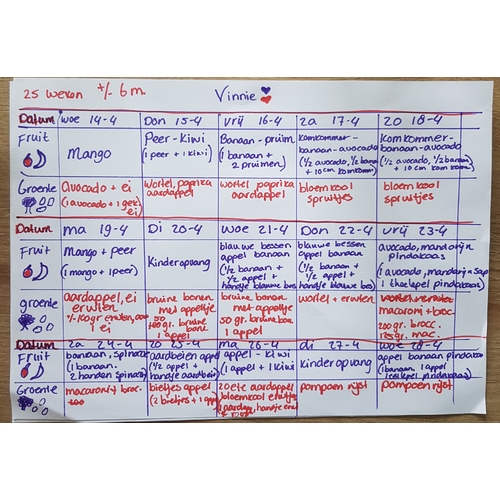 25 weken +/- 6m. Vinnie
Datum woe 14-4 Don 15-4 vrij 16-4 za 17-4 zo 18-4
Fruit Mango Peer-Kiwi (1 peer + 1 kiwi) Banaan-pruim (1 banaan + 2 pruimen) Komkommer-banaan-avocado (1/2 avocado, 1/2 banaan + 10 cm komkommer) Komkommer-banaan-avocado (1/2 avocado, 1/2 banaan + 10 cm komkommer)
Groente Avocado + ei (1 avocado + 1 gek. ei) wortel, paprika aardappel wortel paprika aardappel bloemkool spruitjes bloemkool spruitjes
Datum ma 19-4 Di 20-4 woe 21-4 Don 22-4 vrij 23-4
Fruit Mango + peer (1 mango + 1 peer) Kinderopvang blauwe bessen appel banaan (1/2 banaan + 1/2 appel + handje blauwe bes) blauwe bessen appel banaan (1/2 banaan + 1/2 appel + handje blauwe bes) avocado, mandarijn pindakaas (1 avocado, mandarijn sap 1 theelepel pindakaas)
groente aardappel, ei erwten +/- 100 gr erwten, 1 ei bruine bonen met appeltje 100 gr. bruine bone 1 appel bruine bonen met appeltje 50 gr. bruine bonen 1 appel wortel + erwten macaroni + broc. 200 gr. broc. 125 gr. mac.
Datum za 24-4 zo 25-4 ma 26-4 di 27-4 woe 28-4
Fruit banaan, spinazie (1 banaan, 2 handen spinazie) aardbeien appel (1/2 appel + handje aardbei) appel-kiwi (1 appel + 1 kiwi) Kinderopvang appel banaan pindakaas (1 banaan, 1 appel 1 eetlepel pindakaas)
Groente macaroni + broc. bietjes appel (2 bietjes + 1 app zoete aardappel bloemkool erwtjes pompoen rijst pompoen rijst